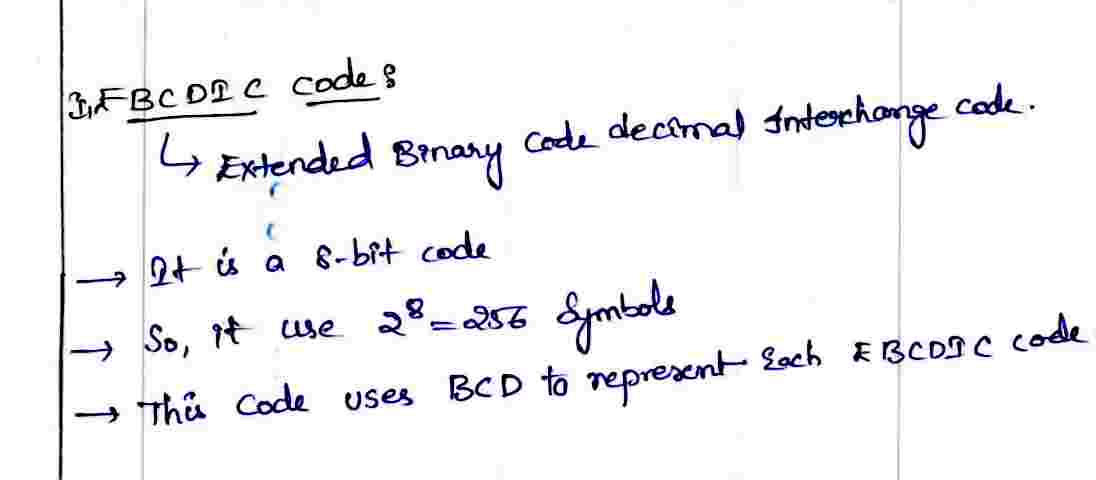 3, EBCDIC code:
↳ Extended Binary code decimal Interchange code.
→ It is a 8-bit code
→ So, it use 2⁸=256 Symbols
→ This code uses BCD to represent Each EBCDIC code